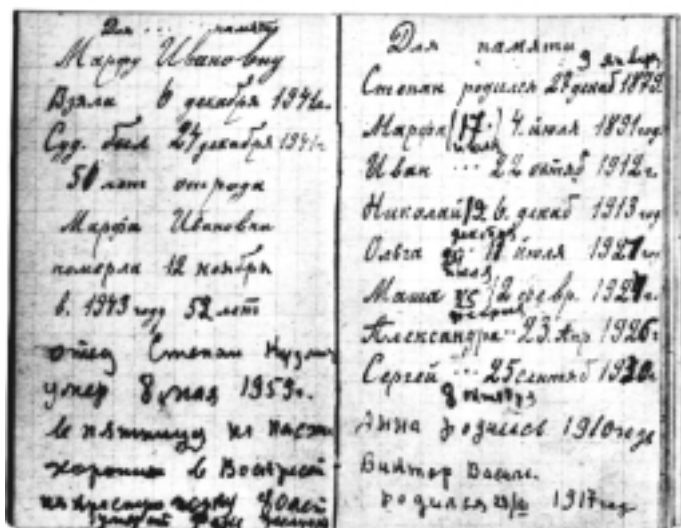 Для ... память
Марфу Ивановну
Взяли 6 декабря 1941г.
Суд. был 24 декабря 1941г
50 лет отрода
Марфа Ивановна
померла 12 ноября
в. 1943 году 52 лет
отец Степан
умер 8 мая 1959г.
в пятницу на пасхи
хоронили в Воскресен
на красную горку
Для памяти
9 январ
Степан родился 27 декаб 1879
Марфа (17.) 4. июля 1891 год
июля
Иван ... 22 октяб 1912 г.
Николай 19 6. декаб 1913 год
декабря
Ольга 11 июля 1921 год
июля
Маша 15) 2 февр. 192 г.
феврал
Александра .. 23. Апр 1926 г
Сергей ... 25 сентяб 1930г
8 октября
Анна родилась 1910 года
Виктор Васил.
родился 1917 год